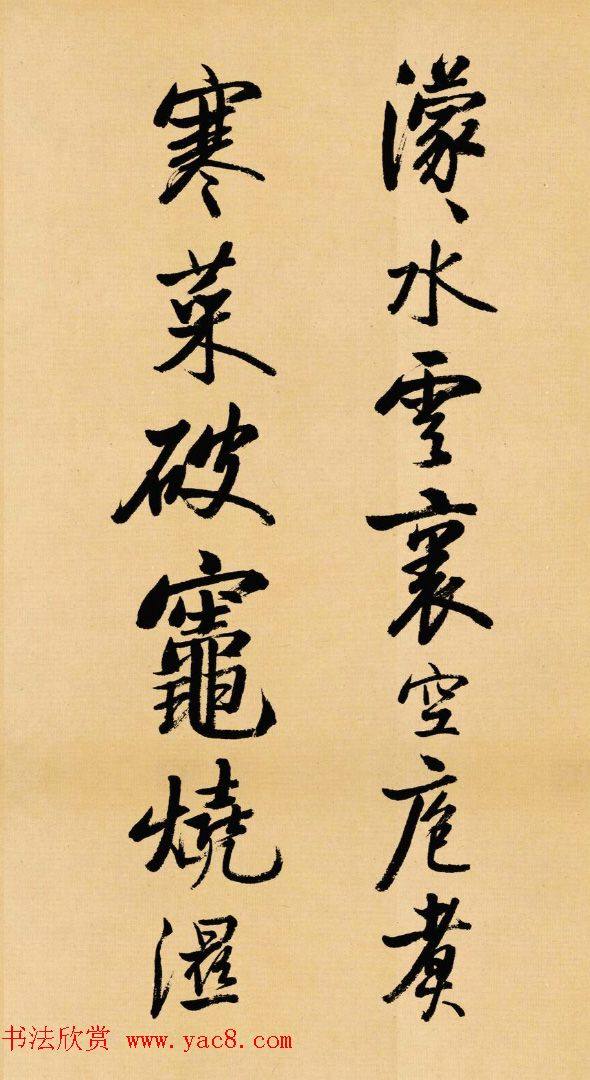 濛〻水雲裏空庖煮
寒菜破竈燒濕
书法欣赏 www.yac8.com